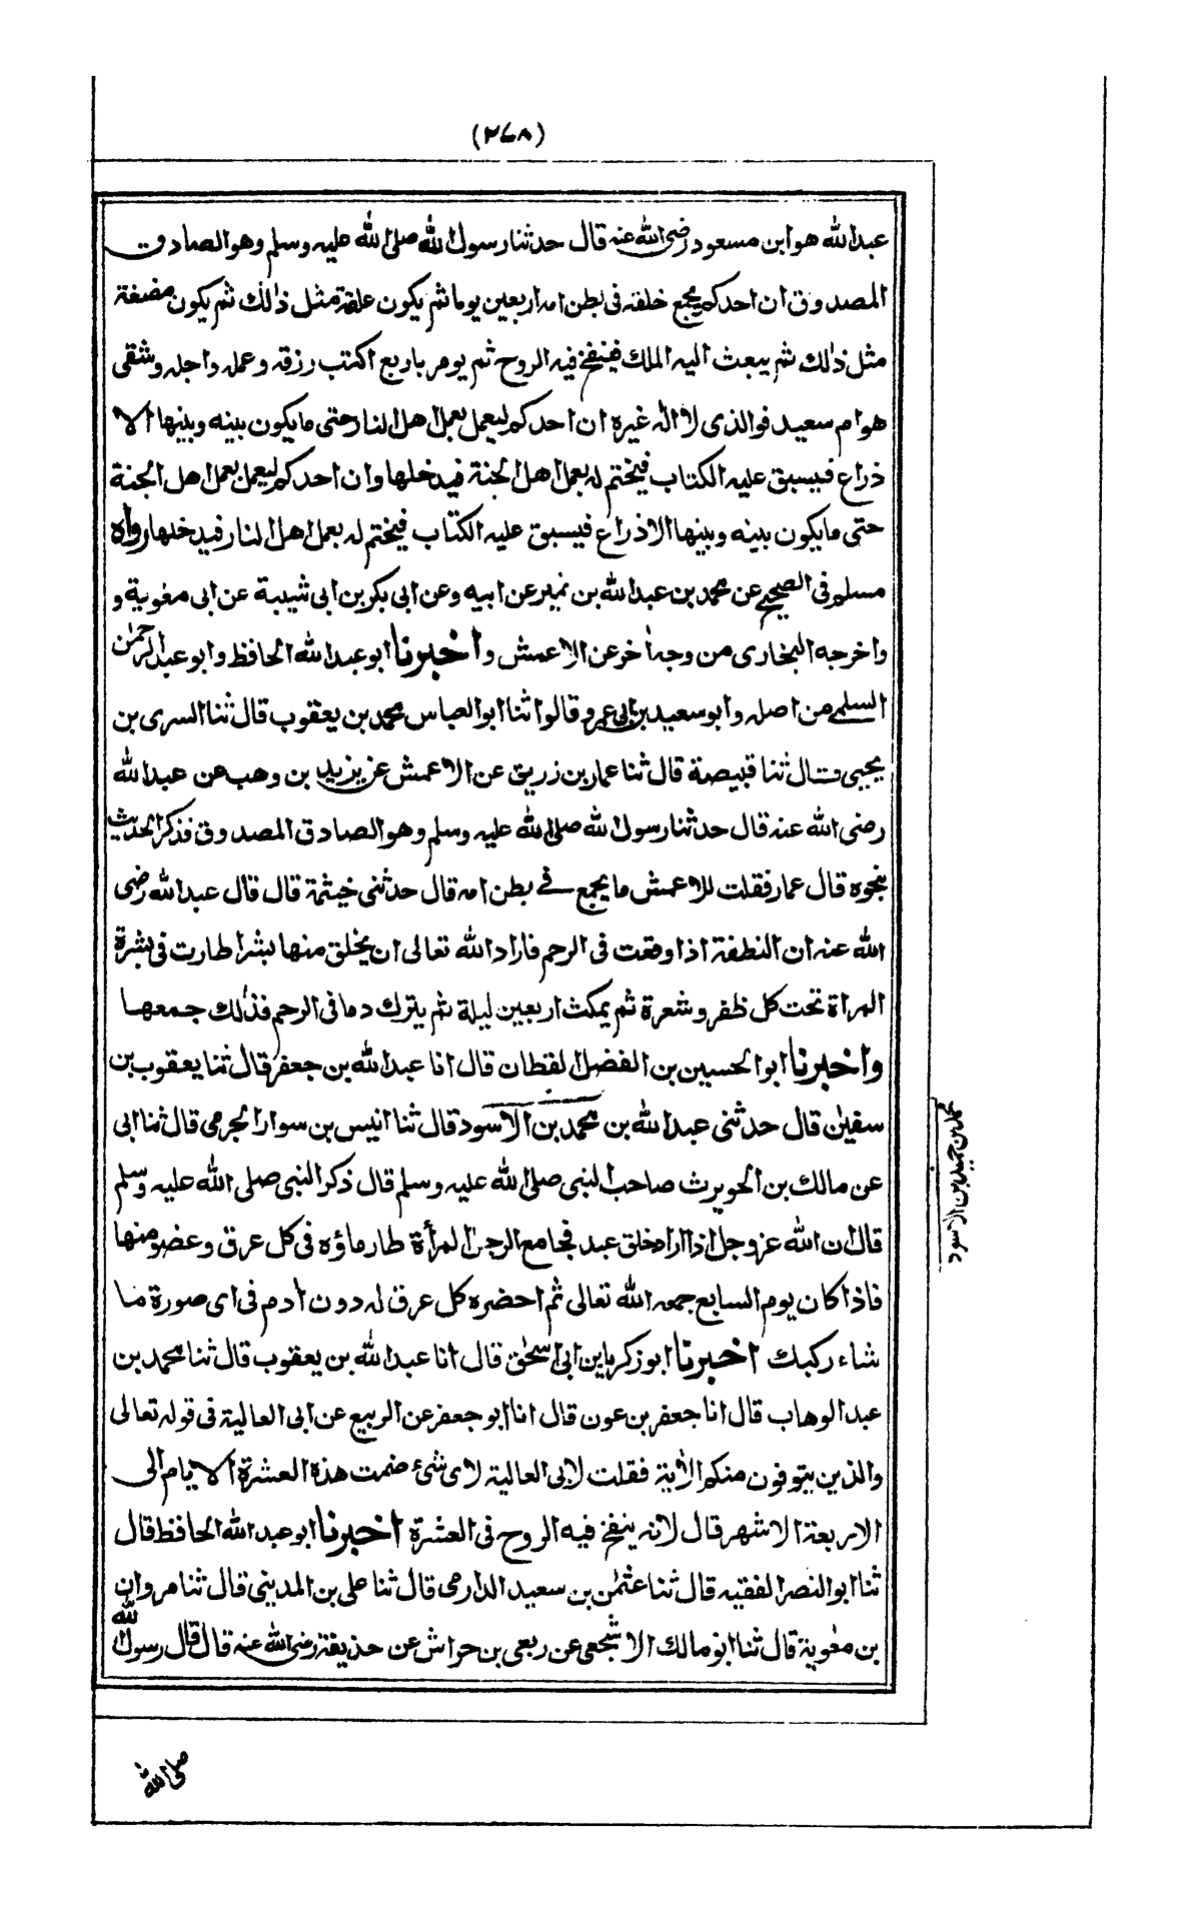 (٢٦٨)
عبدالله هو ابن مسعود رضى الله عنه قال حدثنا رسول الله صلى الله عليه وسلم وهو الصادق
المصدوق ان احدكم يجمع خلقه فى بطن امه اربعين يوما ثم يكون علقة مثل ذالك ثم يكون مضغة
مثل ذالك ثم يبعث اليه الملك فينفخ فيه الروح ثم يومر باربع اكتب رزقه وعمله واجله وشقى
هو ام سعيد فوالذى لا اله غيره ان احدكم ليعمل بعمل اهل النار حتى مايكون بينه وبينها الا
ذراع فيسبق عليه الكتاب فيختم له بعمل اهل الجنة فيدخلها وان احدكم ليعمل بعمل اهل الجنة
حتى مايكون بينه وبينها الا ذراع فيسبق عليه الكتاب فيختم له بعمل اهل النار فيدخلها رواه
مسلم فى الصحيح عن محمد بن عبدالله بن نمير عن ابيه وعن ابى بكر بن ابى شيبة عن ابى معوية و
واخرجه البخارى من وجه اخر عن الاعمش واخبرنا ابو عبدالله الحافظ وابو عبدالرحمن
السلمى من اصله وابو سعيد بن ابى عمرو قالوا ثنا ابو العباس محمد بن يعقوب قال ثنا السرى بن
يحيى قال ثنا قبيصة قال ثنا عمار بن زريق عن الاعمش عن يزيد بن وهب عن عبدالله
رضى الله عنه قال حدثنا رسول الله صلى الله عليه وسلم وهو الصادق المصدوق فذكر الحديث
بنحوه قال عمار فقلت للاعمش مايجمع فى بطن امه قال حدثنى خيثمة قال قال عبدالله رضى
الله عنه ان النطفة اذا وقعت فى الرحم فاراد الله تعالى ان يخلق منها بشرا طارت فى بشرة
المراة تحت كل ظفر وشعرة ثم يمكث اربعين ليلة ثم يترك دما فى الرحم فذلك جمعها
واخبرنا ابو الحسين بن الفضل القطان قال انا عبدالله بن جعفر قال ثنا يعقوب بن
سفين قال حدثنى عبدالله بن محمد بن الاسود قال ثنا انيس بن سوار الجرمى قال ثنا ابى
عن مالك بن الحويرث صاحب النبى صلى الله عليه وسلم قال ذكر النبى صلى الله عليه وسلم
قال ان الله عزوجل اذا اراد خلق عبد فجامع الرجل المرأة طار ماؤه فى كل عرق وعضو منها
فاذا كان يوم السابع جمعه الله تعالى ثم احضره كل عرق له دون ادم فى اى صورة ما
شاء ركبك اخبرنا ابو زكريا بن ابى اسحق قال انا عبدالله بن يعقوب قال ثنا محمد بن
عبدالوهاب قال انا جعفر بن عون قال انا ابو جعفر عن الربيع عن ابى العالية فى قوله تعالى
والذين يتوفون منكم الاية فقلت لابى العالية لاى شئ ضمت هذه العشرة الايام الى
الاربعة الاشهر قال لانه ينفخ فيه الروح فى العشرة اخبرنا ابو عبدالله الحافظ قال
ثنا ابو النصر الفقيه قال ثنا عثمن بن سعيد الدارمى قال ثنا على بن المدينى قال ثنا مروان
بن معوية قال ثنا ابو مالك الاشجعى عن ربعى بن حراش عن حذيفة رضى الله عنه قال قال رسول الله
محمد بن حميد بن الاسود
صلى الله